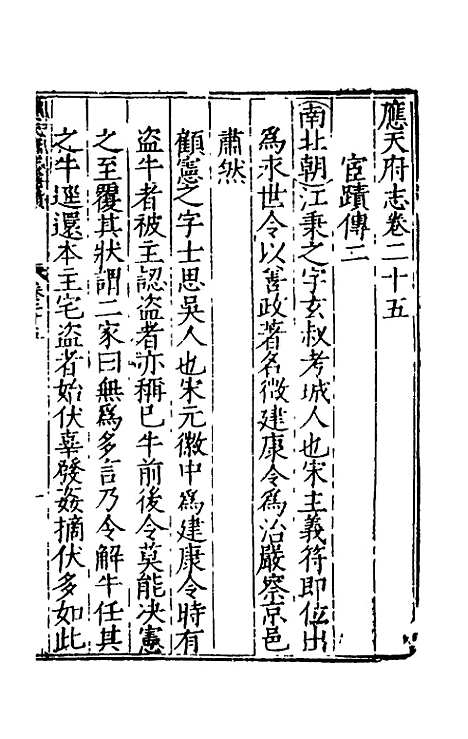 應天府志卷二十五
宦蹟傳二
南北朝江秉之字玄叔考城人也宋主義符即位出
爲永世令以善政著名徵建康令爲治嚴察京邑
肅然
顧憲之字士思吳人也宋元徽中爲建康令時有
盜牛者被主認盜者亦稱己牛前後令莫能决憲
之至覆其狀謂二家曰無爲多言乃令解牛任其
之牛逕還本主宅盜者始伏辜發姦摘伏多如此